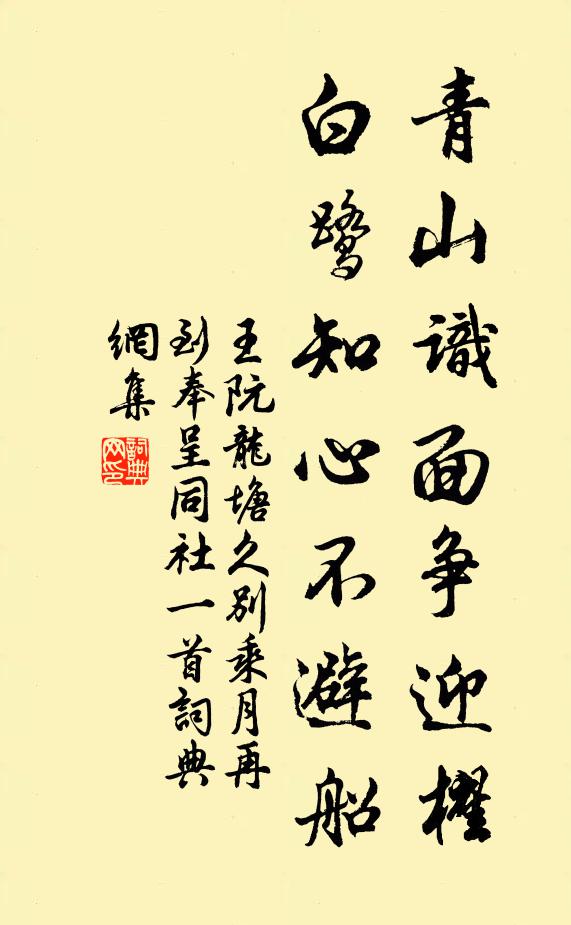 青山識面争迎櫂
白鷺知心不避船
王阮龍塘久別乘月再
到奉呈同社一首詞典
網集
詞典
网印